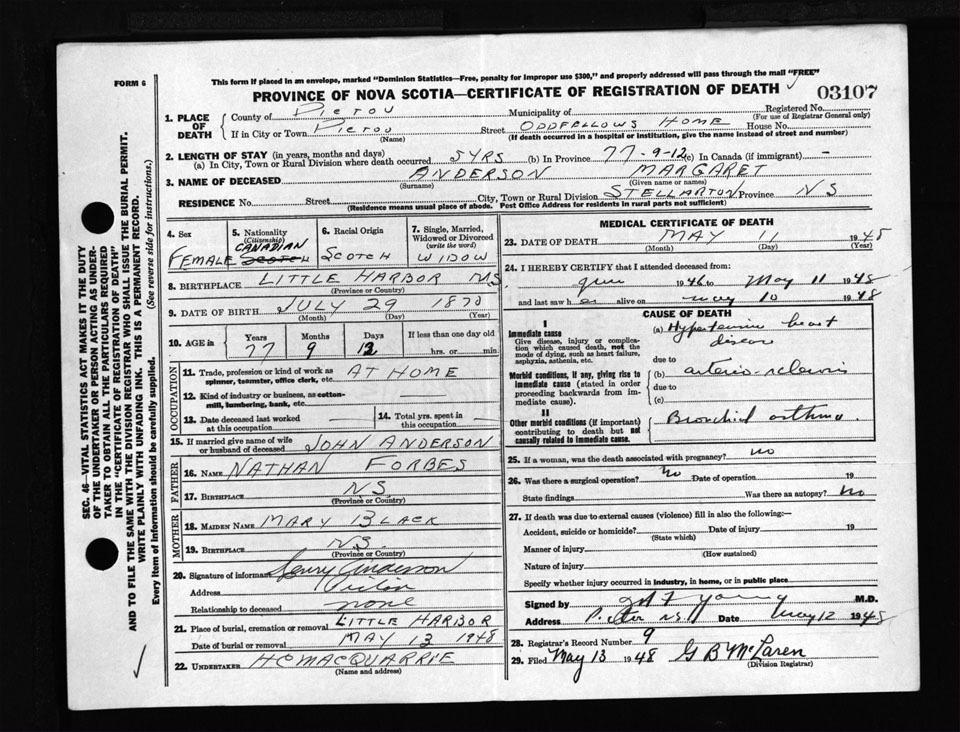 This form if placed in an envelope, marked "Dominion Statistics—Free, penalty for improper use $300," and properly addressed will pass through the mail "FREE"
FORM 6
PROVINCE OF NOVA SCOTIA—CERTIFICATE OF REGISTRATION OF DEATH
03107
1. PLACE OF DEATH
County of PICTOU Municipality of Registered No.
(For use of Registrar General only)
If in City or Town PICTOU Street ODDFELLOWS HOME House No.
(Name) (If death occurred in a hospital or institution, give the name instead of street and number)
2. LENGTH OF STAY (in years, months and days)
(a) In City, Town or Rural Division where death occurred 5 YRS (b) In Province 77-9-12 (c) In Canada (if immigrant) –
3. NAME OF DECEASED ANDERSON MARGARET
(Surname) (Given name or names)
RESIDENCE No. Street City, Town or Rural Division STELLARTON Province NS
(Residence means usual place of abode. Post Office Address for residents in rural parts not sufficient)
4. Sex
FEMALE
5. Nationality
(Citizenship)
CANADIAN
SCOTCH
6. Racial Origin
SCOTCH
7. Single, Married, Widowed or Divorced
(write the word)
WIDOW
8. BIRTHPLACE LITTLE HARBOR N.S.
(Province or Country)
9. DATE OF BIRTH JULY 29 1870
(Month) (Day) (Year)
10. AGE in Years Months Days If less than one day old
77 9 12 hrs. or min.
OCCUPATION
11. Trade, profession or kind of work as spinner, teamster, office clerk, etc. AT HOME
12. Kind of industry or business, as cotton-mill, lumbering, bank, etc. —
13. Date deceased last worked at this occupation
14. Total yrs. spent in this occupation
15. If married give name of wife or husband of deceased JOHN ANDERSON
FATHER
16. NAME NATHAN FORBES
17. BIRTHPLACE NS
(Province or Country)
MOTHER
18. MAIDEN NAME MARY BLACK
19. BIRTHPLACE N.S.
(Province or Country)
20. Signature of informant Henry Anderson
Address Pictou
Relationship to deceased none
21. Place of burial, cremation or removal LITTLE HARBOR
Date of burial or removal MAY 13 1948
22. UNDERTAKER HCMACQUARRIE
(Name and address)
MEDICAL CERTIFICATE OF DEATH
23. DATE OF DEATH MAY 11 1948
(Month) (Day) (Year)
24. I HEREBY CERTIFY that I attended deceased from:
June 1946 to May 11 1948
and last saw her alive on May 10 1948
CAUSE OF DEATH
I
Immediate cause
Give disease, injury or complication which caused death, not the mode of dying, such as heart failure, asphyxia, asthenia, etc.
(a) Hypertensive heart disease
due to
Morbid conditions, if any, giving rise to immediate cause (stated in order proceeding backwards from immediate cause).
(b) arterio-sclerosis
due to
(c)
II
Other morbid conditions (if important) contributing to death but not causally related to immediate cause.
Bronchial asthma
25. If a woman, was the death associated with pregnancy? no
26. Was there a surgical operation? no Date of operation 19
State findings Was there an autopsy? no
27. If death was due to external causes (violence) fill in also the following:—
Accident, suicide or homicide? Date of injury 19
(State which)
Manner of injury
(How sustained)
Nature of injury
Specify whether injury occurred in industry, in home, or in public place
Signed by Young M.D.
Address Pictou N.S. Date May 12 1948
28. Registrar's Record Number 9
29. Filed May 13 1948 G B McLaren
(Division Registrar)
SEC. 46—VITAL STATISTICS ACT MAKES IT THE DUTY
OF THE UNDERTAKER OR PERSON ACTING AS UNDER-
TAKER TO OBTAIN ALL THE PARTICULARS REQUIRED
IN THE "CERTIFICATE OF REGISTRATION OF DEATH"
AND TO FILE THE SAME WITH THE DIVISION REGISTRAR WHO SHALL ISSUE THE BURIAL PERMIT.
WRITE PLAINLY WITH UNFADING INK. THIS IS A PERMANENT RECORD.
Every item of information should be carefully supplied. (See reverse side for instructions.)